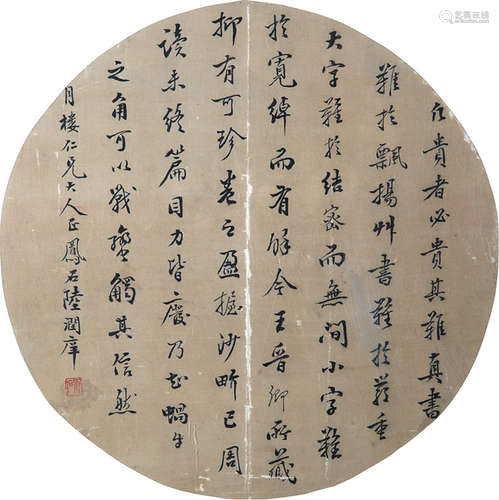 艺典中国
貴者必貴其難真書
難於飄揚艸書難於嚴重
大字難於結密而無間小字難
於寬綽而有餘今王晉卿所藏
抑有可珍卷之盈握沙畍已周
讀未終篇目力皆廢乃知蝸牛
之角可以戰蠻觸其信然
月樓仁兄大人正鳳石陸潤庠